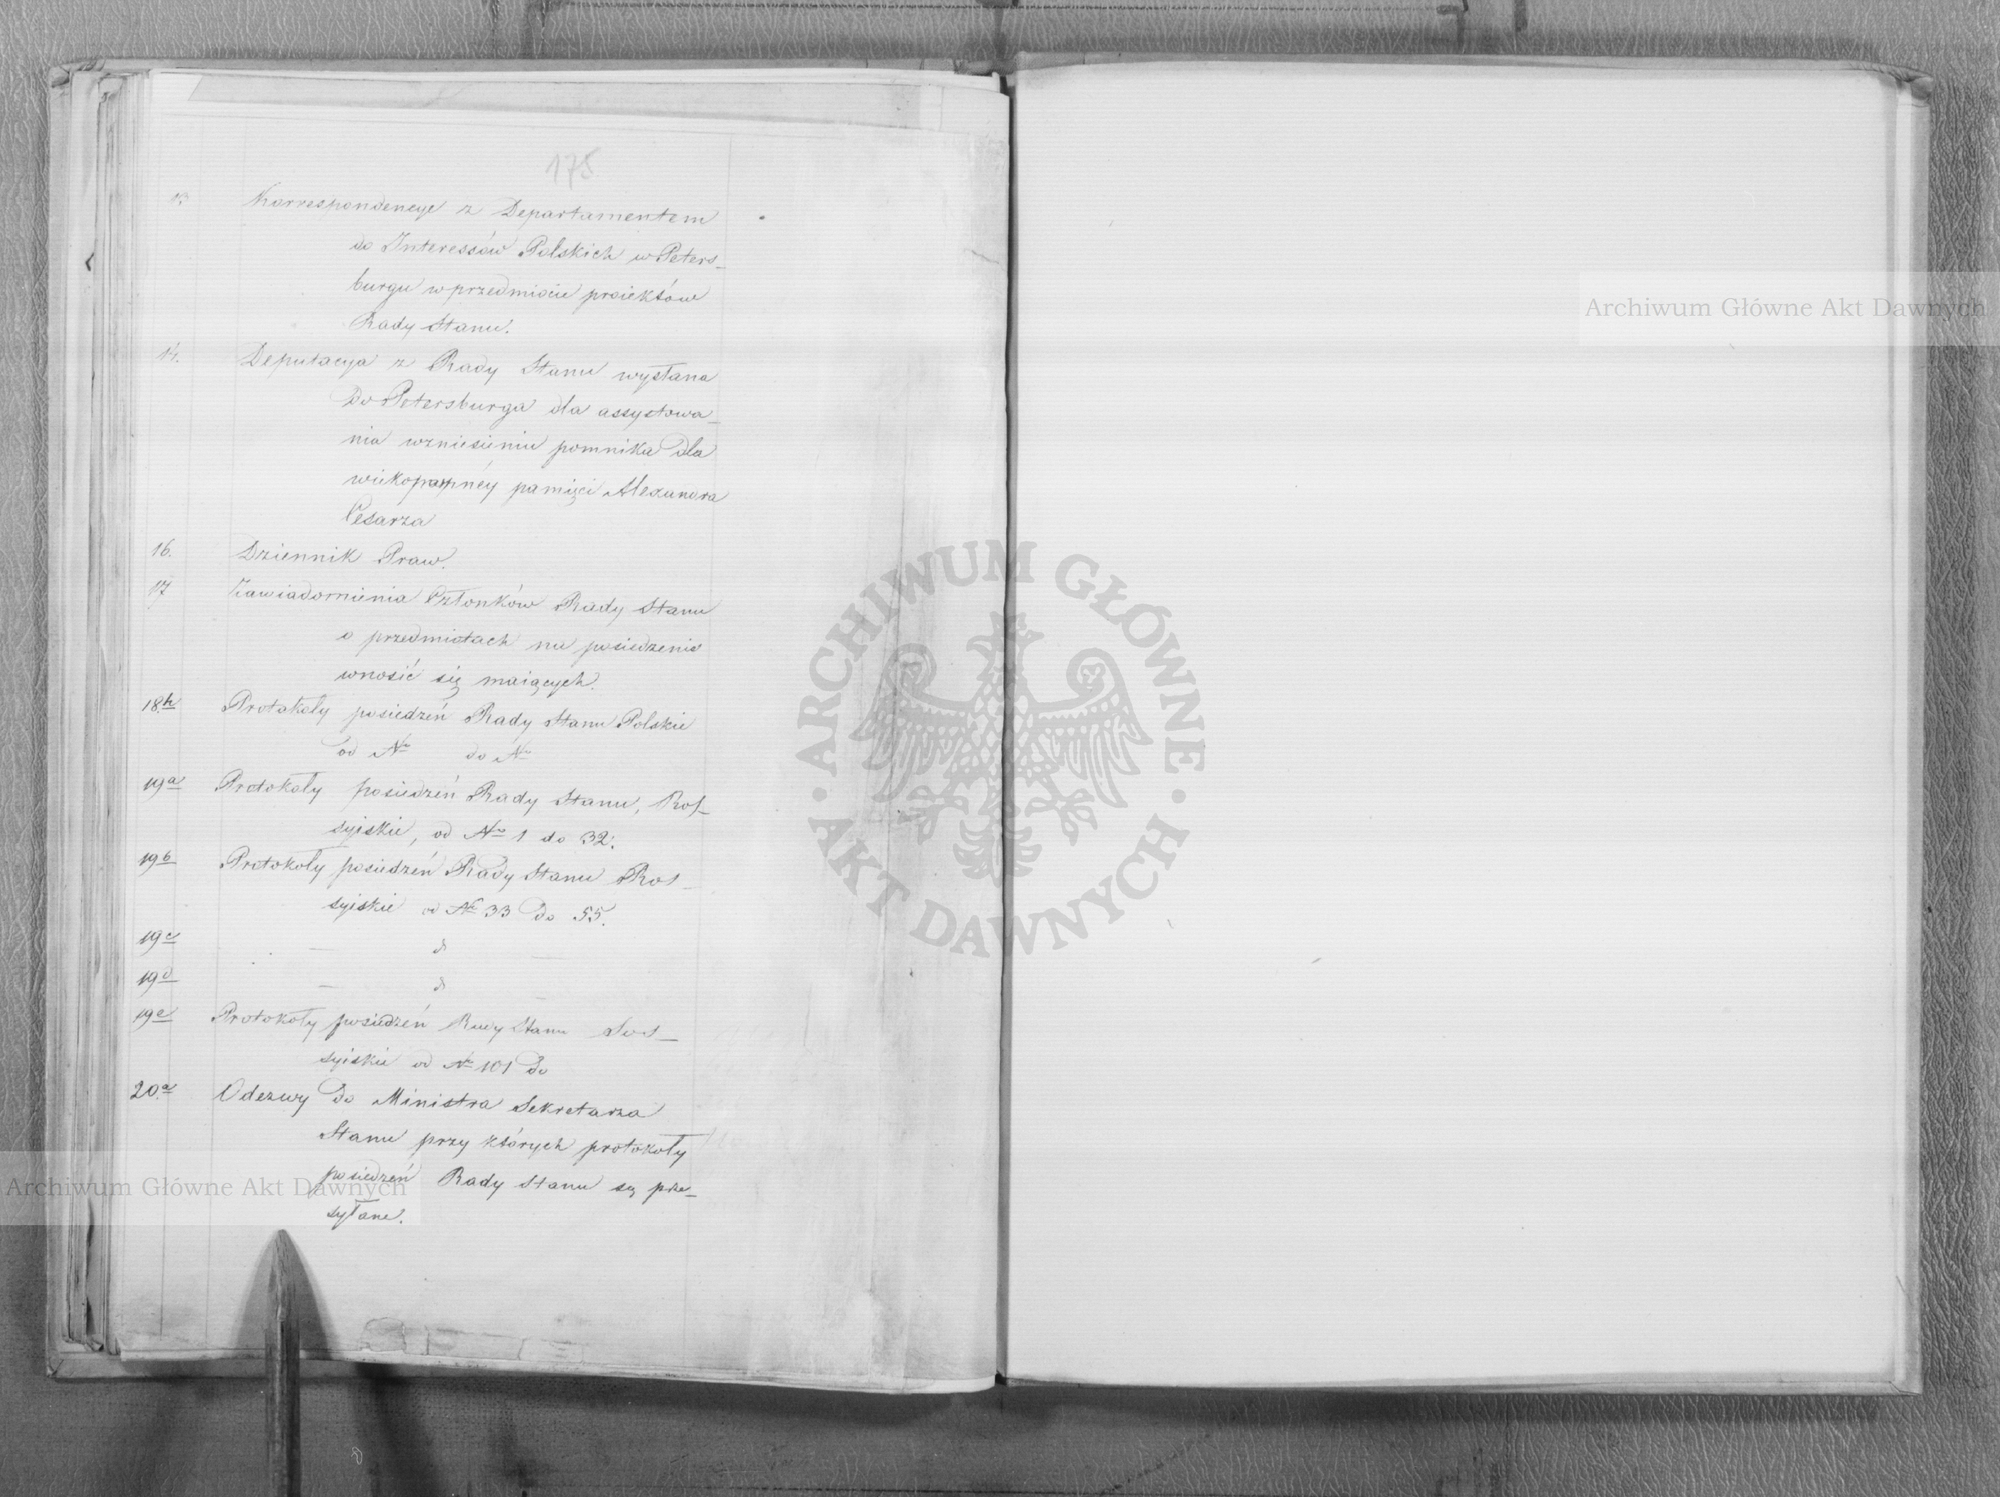 175
13 Korrespondencye z Departamentem
do Interessów Polskich w Peters-
burgu w przedmiocie proiektów
Rady Stanu.
14. Deputacya z Rady Stanu wysłana
do Petersburga dla assystowa-
nia wzniesieniu pomnika dla
wiekopomnéy pamięci Alexandra
Cesarza
16. Dziennik Praw.
17 Zawiadomienia Członków Rady Stanu
o przedmiotach na posiedzenie
wnosić się maiących.
18. Protokoły posiedzeń Rady Stanu Polskie
od No do No
19a Protokoły posiedzeń Rady Stanu, Ros-
syiskie, od No 1 do 32.
19b Protokoły posiedzeń Rady Stanu Ros-
syiskie od No 33 do 55.
19c — d —
19d — d —
19e Protokoły posiedzeń Rady Stanu Ros-
syiskie od No 101 do
20.a Odezwy do Ministra Sekretarza
Stanu przy których protokoły
posiedzeń Rady Stanu są prze-
syłane.
Archiwum Główne Akt Dawnych
Archiwum Główne Akt Dawnych
ARCHIWUM GŁÓWNE
AKT DAWNYCH